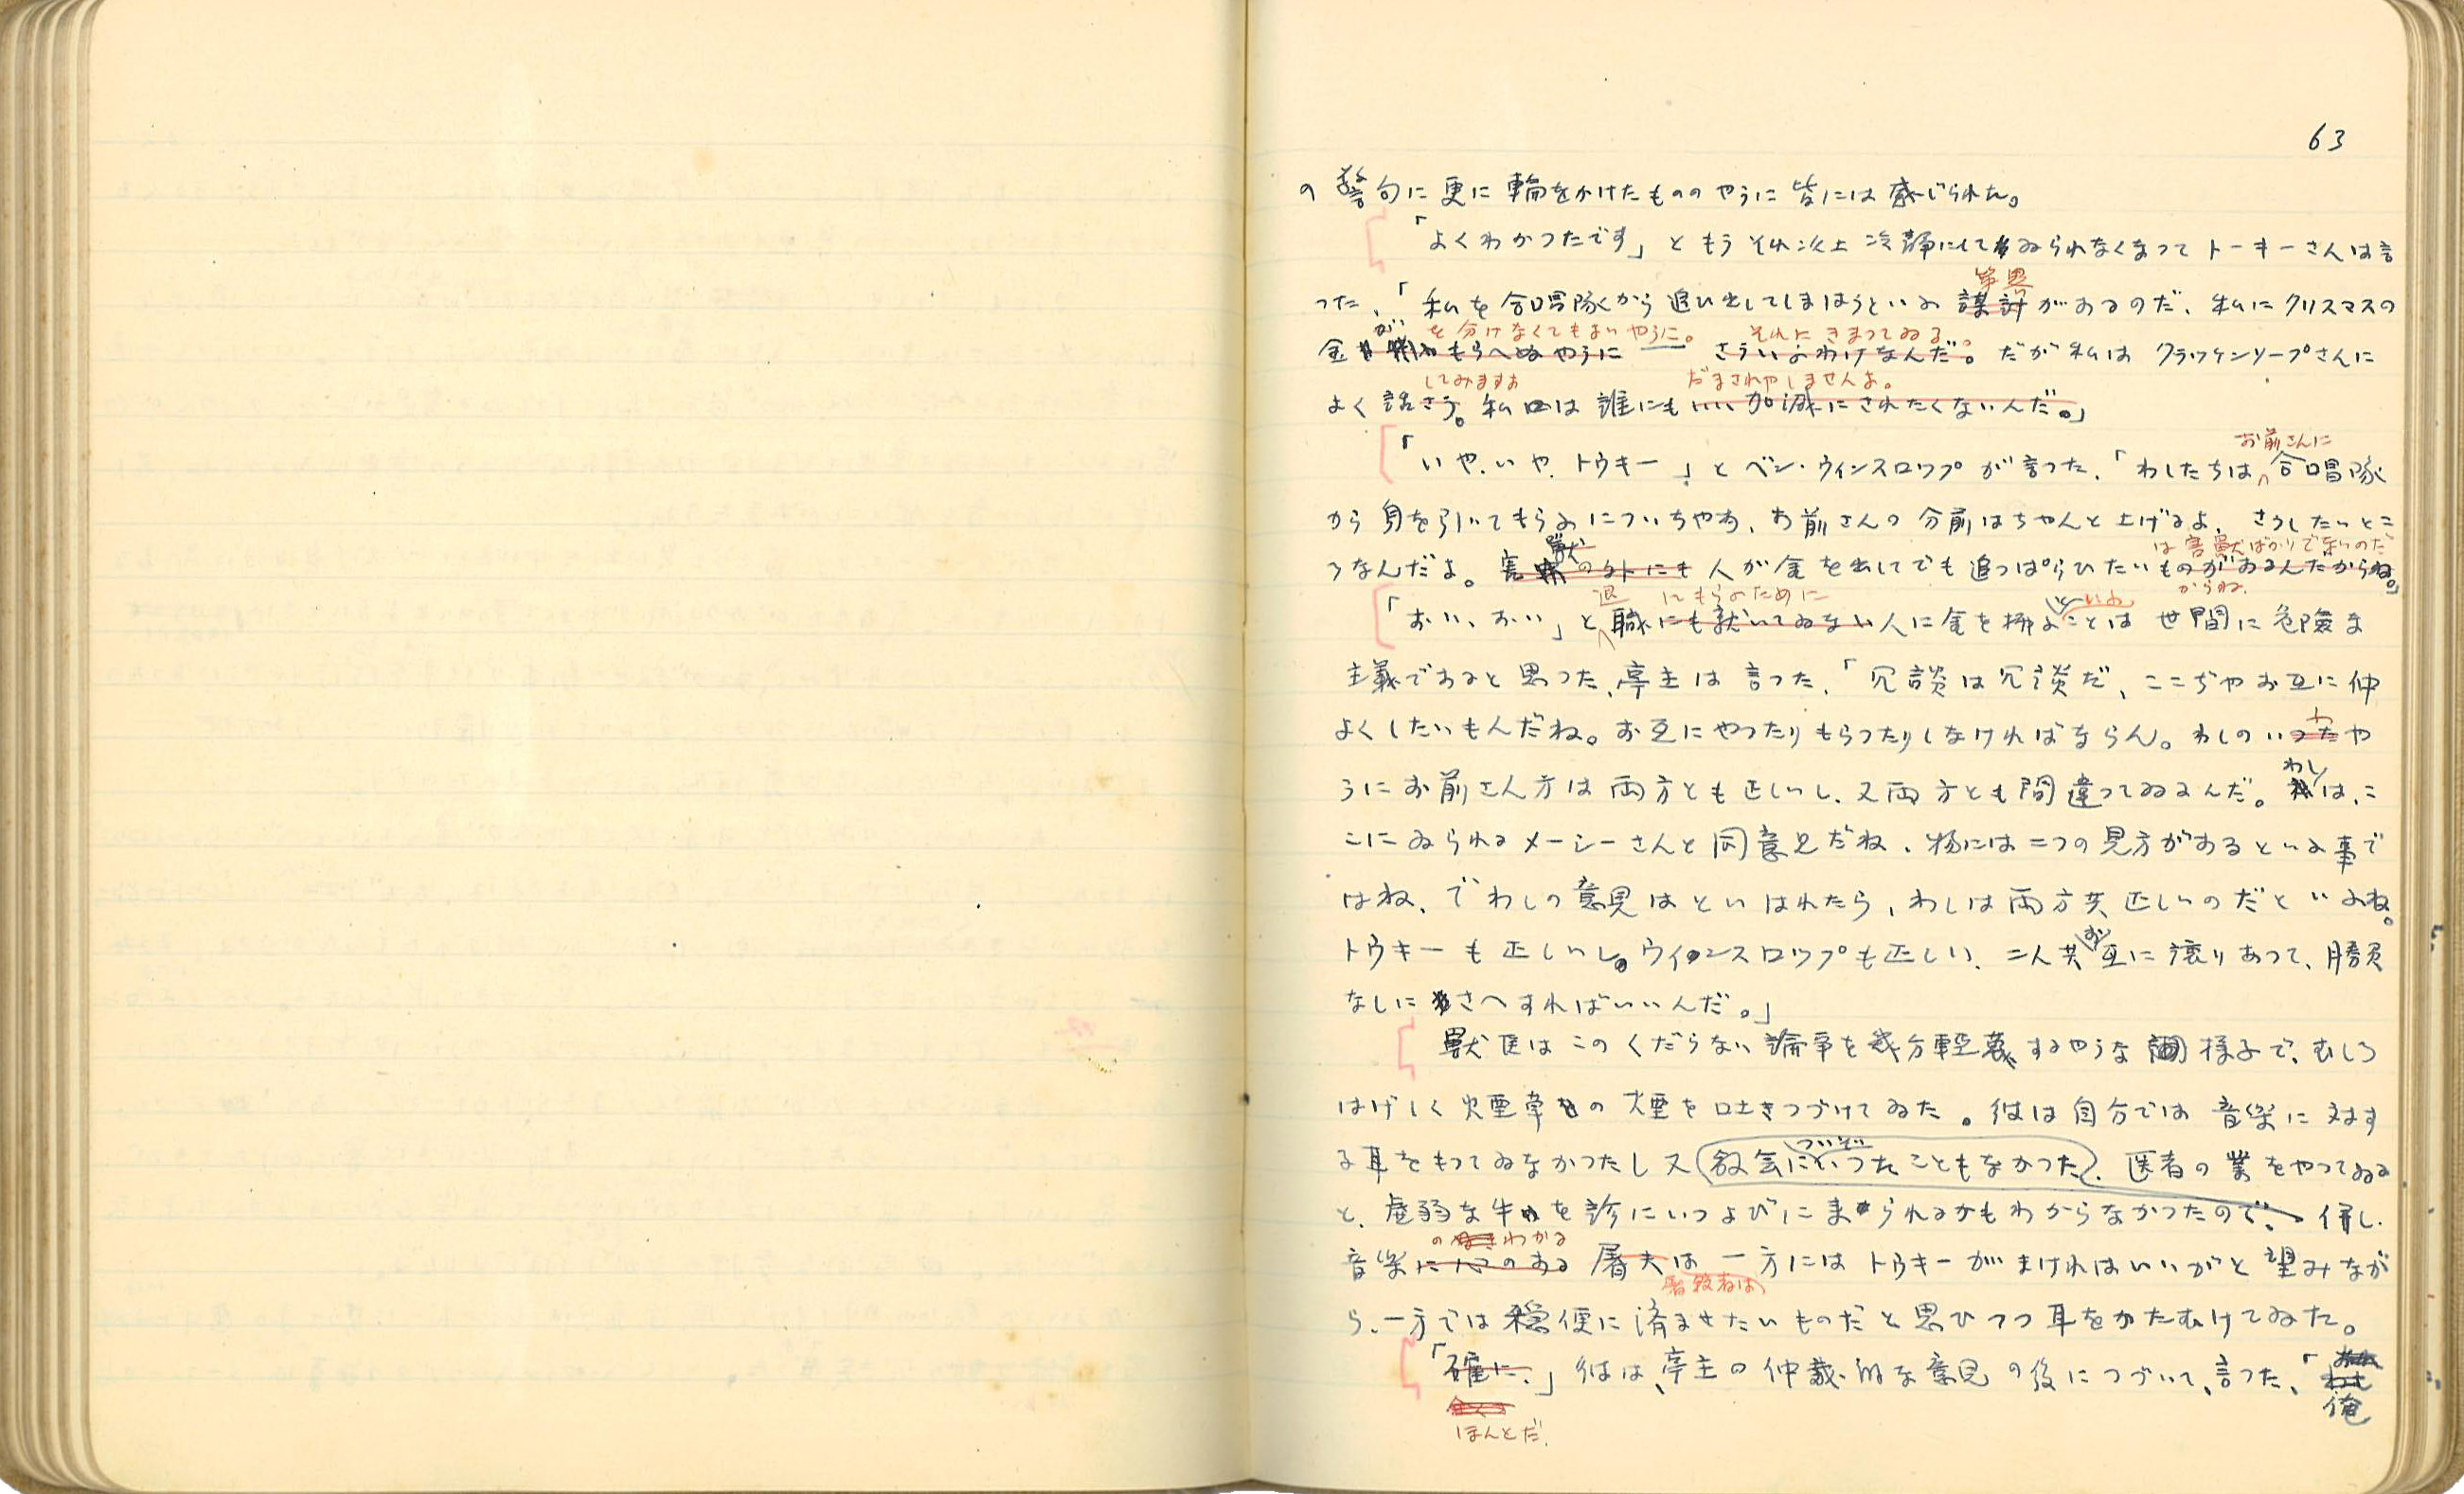 63
の警句に更に輪をかけたもののやうに皆には感じられた。
「よくわかつたです」ともうそれ以上冷静にしてゐられなくなつてトーキーさんは言
策畧
つた、「私を合唱隊から追ひ出してしまはうといふ謀計があるのだ、私にクリスマスの
が を分けなくてもよいやうに。 それにきまつてゐる。
金 もらへぬやうに── さういふわけなんだ。だが私はクラッケンソープさんに
してみますよ だまされやしませんよ。
よく話さう。私は誰にもいい加減にされたくないんだ。」
お前さんに
「いや、いや、トウキー」とベン・ウィンスロップが言つた、「わしたちは合唱隊
から身を引いてもらふについちやあ、お前さんの分前はちやんと上げるよ、さうしたいとこ
獣 は害獣ばかりで無いのだ
ろなんだよ。害 の外にも人が金を出してでも追つぱらひたいものがあるんだからね。」
退 いてもらふために といふ からね。
「おい、おい」と職にも就いてゐない人に金を拂ふことは世間に危険な
主義であると思つた、亭主は言つた、「冗談は冗談だ、ここぢやお互に仲
よくしたいもんだね。お互にやつたりもらつたりしなければならん。わしのいつたや
ふ
わし
うにお前さん方は両方とも正しいし、又両方とも間違つてゐるんだ。は、こ
こにゐられるメーシーさんと同意見だね、物には二つの見方があるといふ事で
はね、でわしの意見はといはれたら、わしは両方共正しいのだといふね。
お
トウキーも正しいし。ウインスロップも正しい、二人共互に譲りあつて、勝負
なしにさへすればいいんだ。」
獣医はこのくだらない論争を幾分軽蔑するやうな様子で、むしろ
はげしく煙草の煙を吐きつづけてゐた。彼は自分では音楽に対す
ついぞ
る耳をもつてゐなかつたし又教会にいつたこともなかつた、医者の業をやつてゐる
と、虚弱な牛を診にいつよびにまゐられるかもわからなかつたので、併し、
のわかる
音楽に心のある屠夫は一方にはトウキーがまければいいがと望みなが
屠殺者は
ら、一方では穏便に済ませたいものだと思ひつつ耳をかたむけてゐた。
「確に、」彼は、亭主の仲裁的な意見の後につづいて、言つた、「俺
ほんとだ、